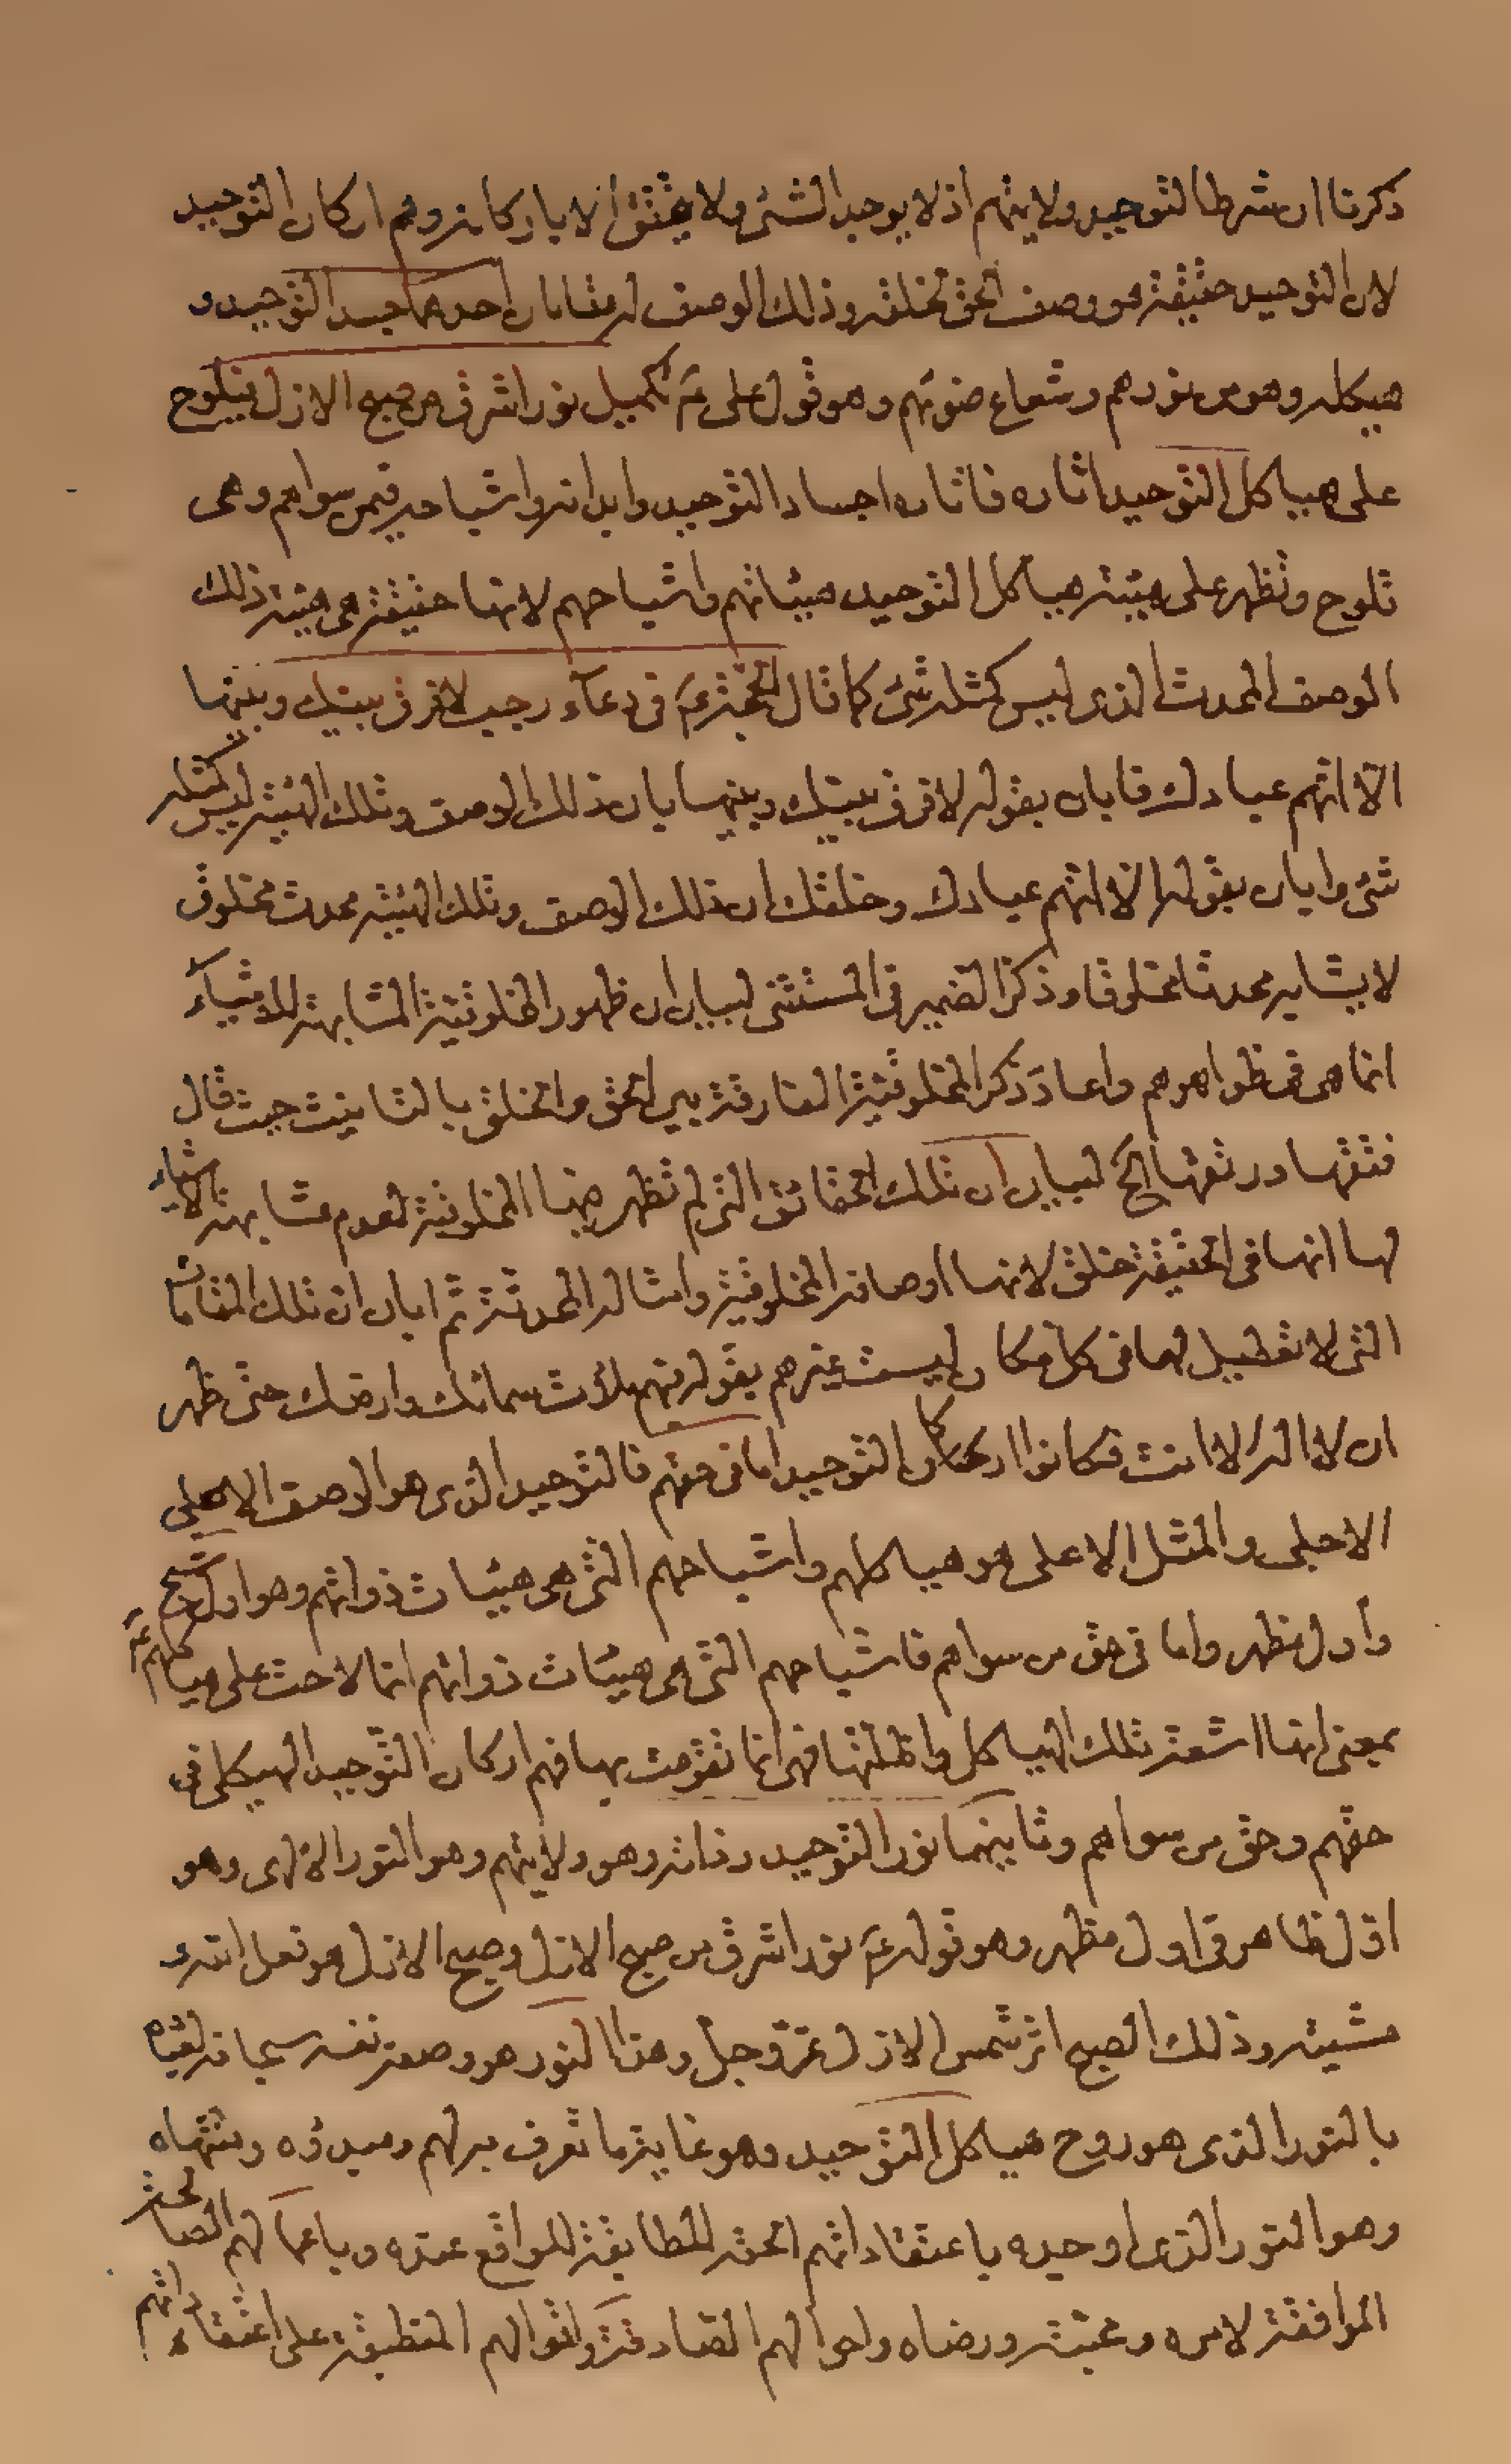 ذكرنا ان شرط التوحيد ولايتهم اذ لا يوجد الشئ ولا يتحقق الا باركانه وهم اركان التوحيد
لان التوحيد حقيقة هو وصف الحق لخلقه وذلك الوصف له مقامان احدهما جسد التوحيد و
هيكله وهو من نورهم وشعاع ضوئهم وهو قول علي ع لكميل نور اشرق من صبح الازل فيلوح
على هياكل التوحيد اثاره فاثاره اجساد التوحيد وابدانه واشباحه فيمن سواهم وهى
تلوح وتظهر على هيئة هياكل التوحيد هيئاتهم واشباحهم لانها حقيقة هى هيئة ذلك
الوصف المحدث الذى ليس كمثله شئ كما قال الحجة ع فى دعآء رجب لا فرق بينك وبينها
الا انهم عبادك فابان بقوله لا فرق بينك وبينها بان ذلك الوصف وتلك الهيئة ليس كمثله
شئ وابان بقوله الا انهم عبادك وخلقك ان ذلك الوصف وتلك الهيئة محدث مخلوق
لا يشابه محدثا مخلوقا وذكر الضمير فى المستثنى لبيان ان ظهور المخلوقية المشابهة للاشيآء
انما هى فى ظواهرهم واعاد ذكر المخلوقية الفارقة بين الحق والخلق بالتانيث حيث قال
فتقها ورتقها الخ لبيان ان تلك الحقائق التى لم تظهر منها المخلوقية لعدم مشابهة الاشياء
لها انها فى الحقيقة خلق لانها اوصافه المخلوقية وامثاله المحدثة ثم ابان ان تلك المقامات
التى لا تعطيل لها فى كل مكان ليست غيرهم بقوله فبهم ملأت سمائك وارضك حتى ظهر
ان لا اله الا انت فكانوا اركان التوحيد اما فى حقهم فالتوحيد الذى هو الوصف الاعلى
الاجلى والمثل الاعلى هو هياكلهم واشباحهم التى هى هيئات ذواتهم وهو اول شبح
واول مظهر واما فى حق من سواهم فاشباحهم التى هى هيئات ذواتهم انما لاحت على هياكلهم ع
بمعنى انها اشعة تلك الهياكل واظلتها فهى انما تقومت بها فهم اركان التوحيد الهيكلى فى
حقهم وحق من سواهم وثانيهما نور التوحيد وذاته وهو ولايتهم وهو النور الازلى وهو
اول ظاهر فى اول مظهر وهو قوله ع نور اشرق من صبح الازل وصبح الازل هو فعل الله و
مشيته وذلك الصبح اثر شمس الازل عز وجل وهذا النور هو وصفه نفسه سبحانه لعباده
بالنور الذى هو روح هياكل التوحيد وهو غاية ما تعرف به لهم ومبدؤه ومنتهاه
وهو النور الذى اوجده باعتقاداتهم الحقه المطابقة للواقع عنده وباعمالهم الصالحة
الموافقة لامره ومحبته ورضاه واحوالهم الصادقة واقوالهم المنطبقة على اعتقاداتهم